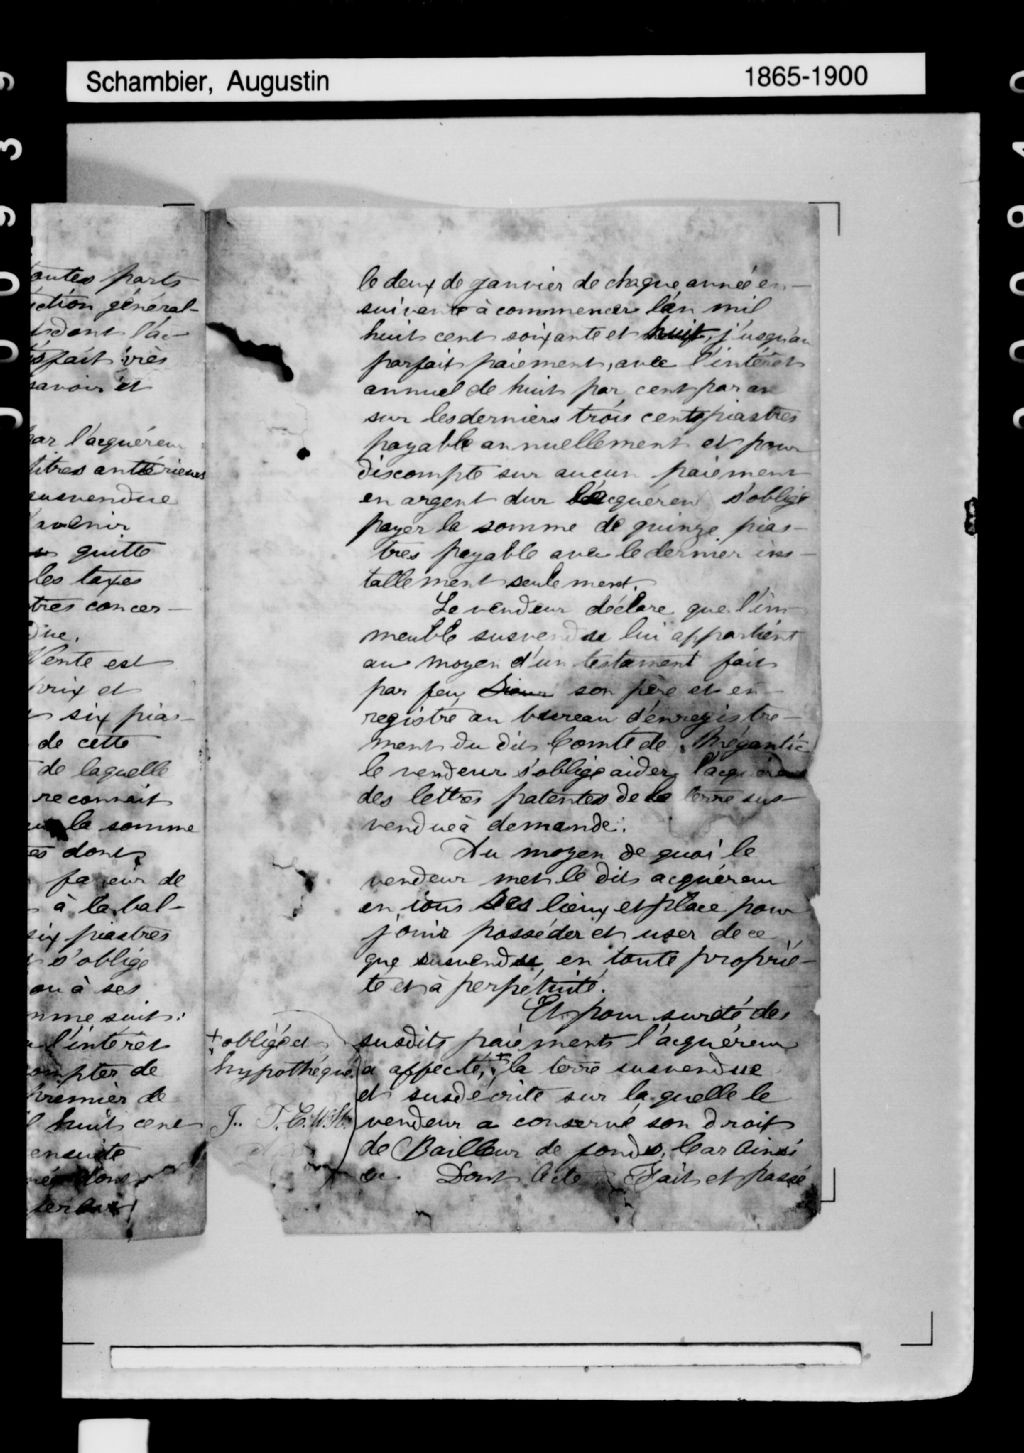 Schambier, Augustin
1865-1900
outes parts
ction général-
dont l'ac-
fait très
savoir et
par l'acquéreur
titres antérieurs
susvendue
l'avenir
quitte
les taxes
tres concer-
due.
Vente est
prix et
six pias-
de cette
de laquelle
reconnait
la somme
es dont
faveur de
à la bal-
six piastres
s'oblige
ou à ses
mme suit:
l'intérêt
compter de
premier de
huit cent
ensuite
le deux de janvier de chaque année en-
suivante à commencer l'an mil
huit cent soixante et huit, jusqu'au
parfait paiement, avec l'intérêt
annuel de huit par cent par an
sur les derniers trois cents piastres
payable annuellement et pour
discompte sur aucun paiement
en argent dur l'acquéreur s'oblige
payer la somme de quinze pias-
tres payable avec le dernier ins-
tallement seulement.
Le vendeur déclare que l'im-
meuble susvendu lui appartient
au moyen d'un testament fait
par feu Sieur son père et en-
registré au bureau d'enregistre-
ment du dit Comté de Mégantic
le vendeur s'oblige aider l'acquéreur
des lettres patentes de la terre sus-
vendue à demande.
Au moyen de quoi le
vendeur met le dit acquéreur
en tous ses lieux et place pour
jouir posséder et user de ce
que susvendu en toute proprié-
té et à perpétuité.
Et pour sureté des
susdits paiements l'acquéreur
a affecté, + la terre susvendue
et susdécrite sur laquelle le
vendeur a conservé son droit
de Bailleur de fonds, Car Ainsi
&c. Dont Acte Fait et passé
+ obligé et
hypothéqué